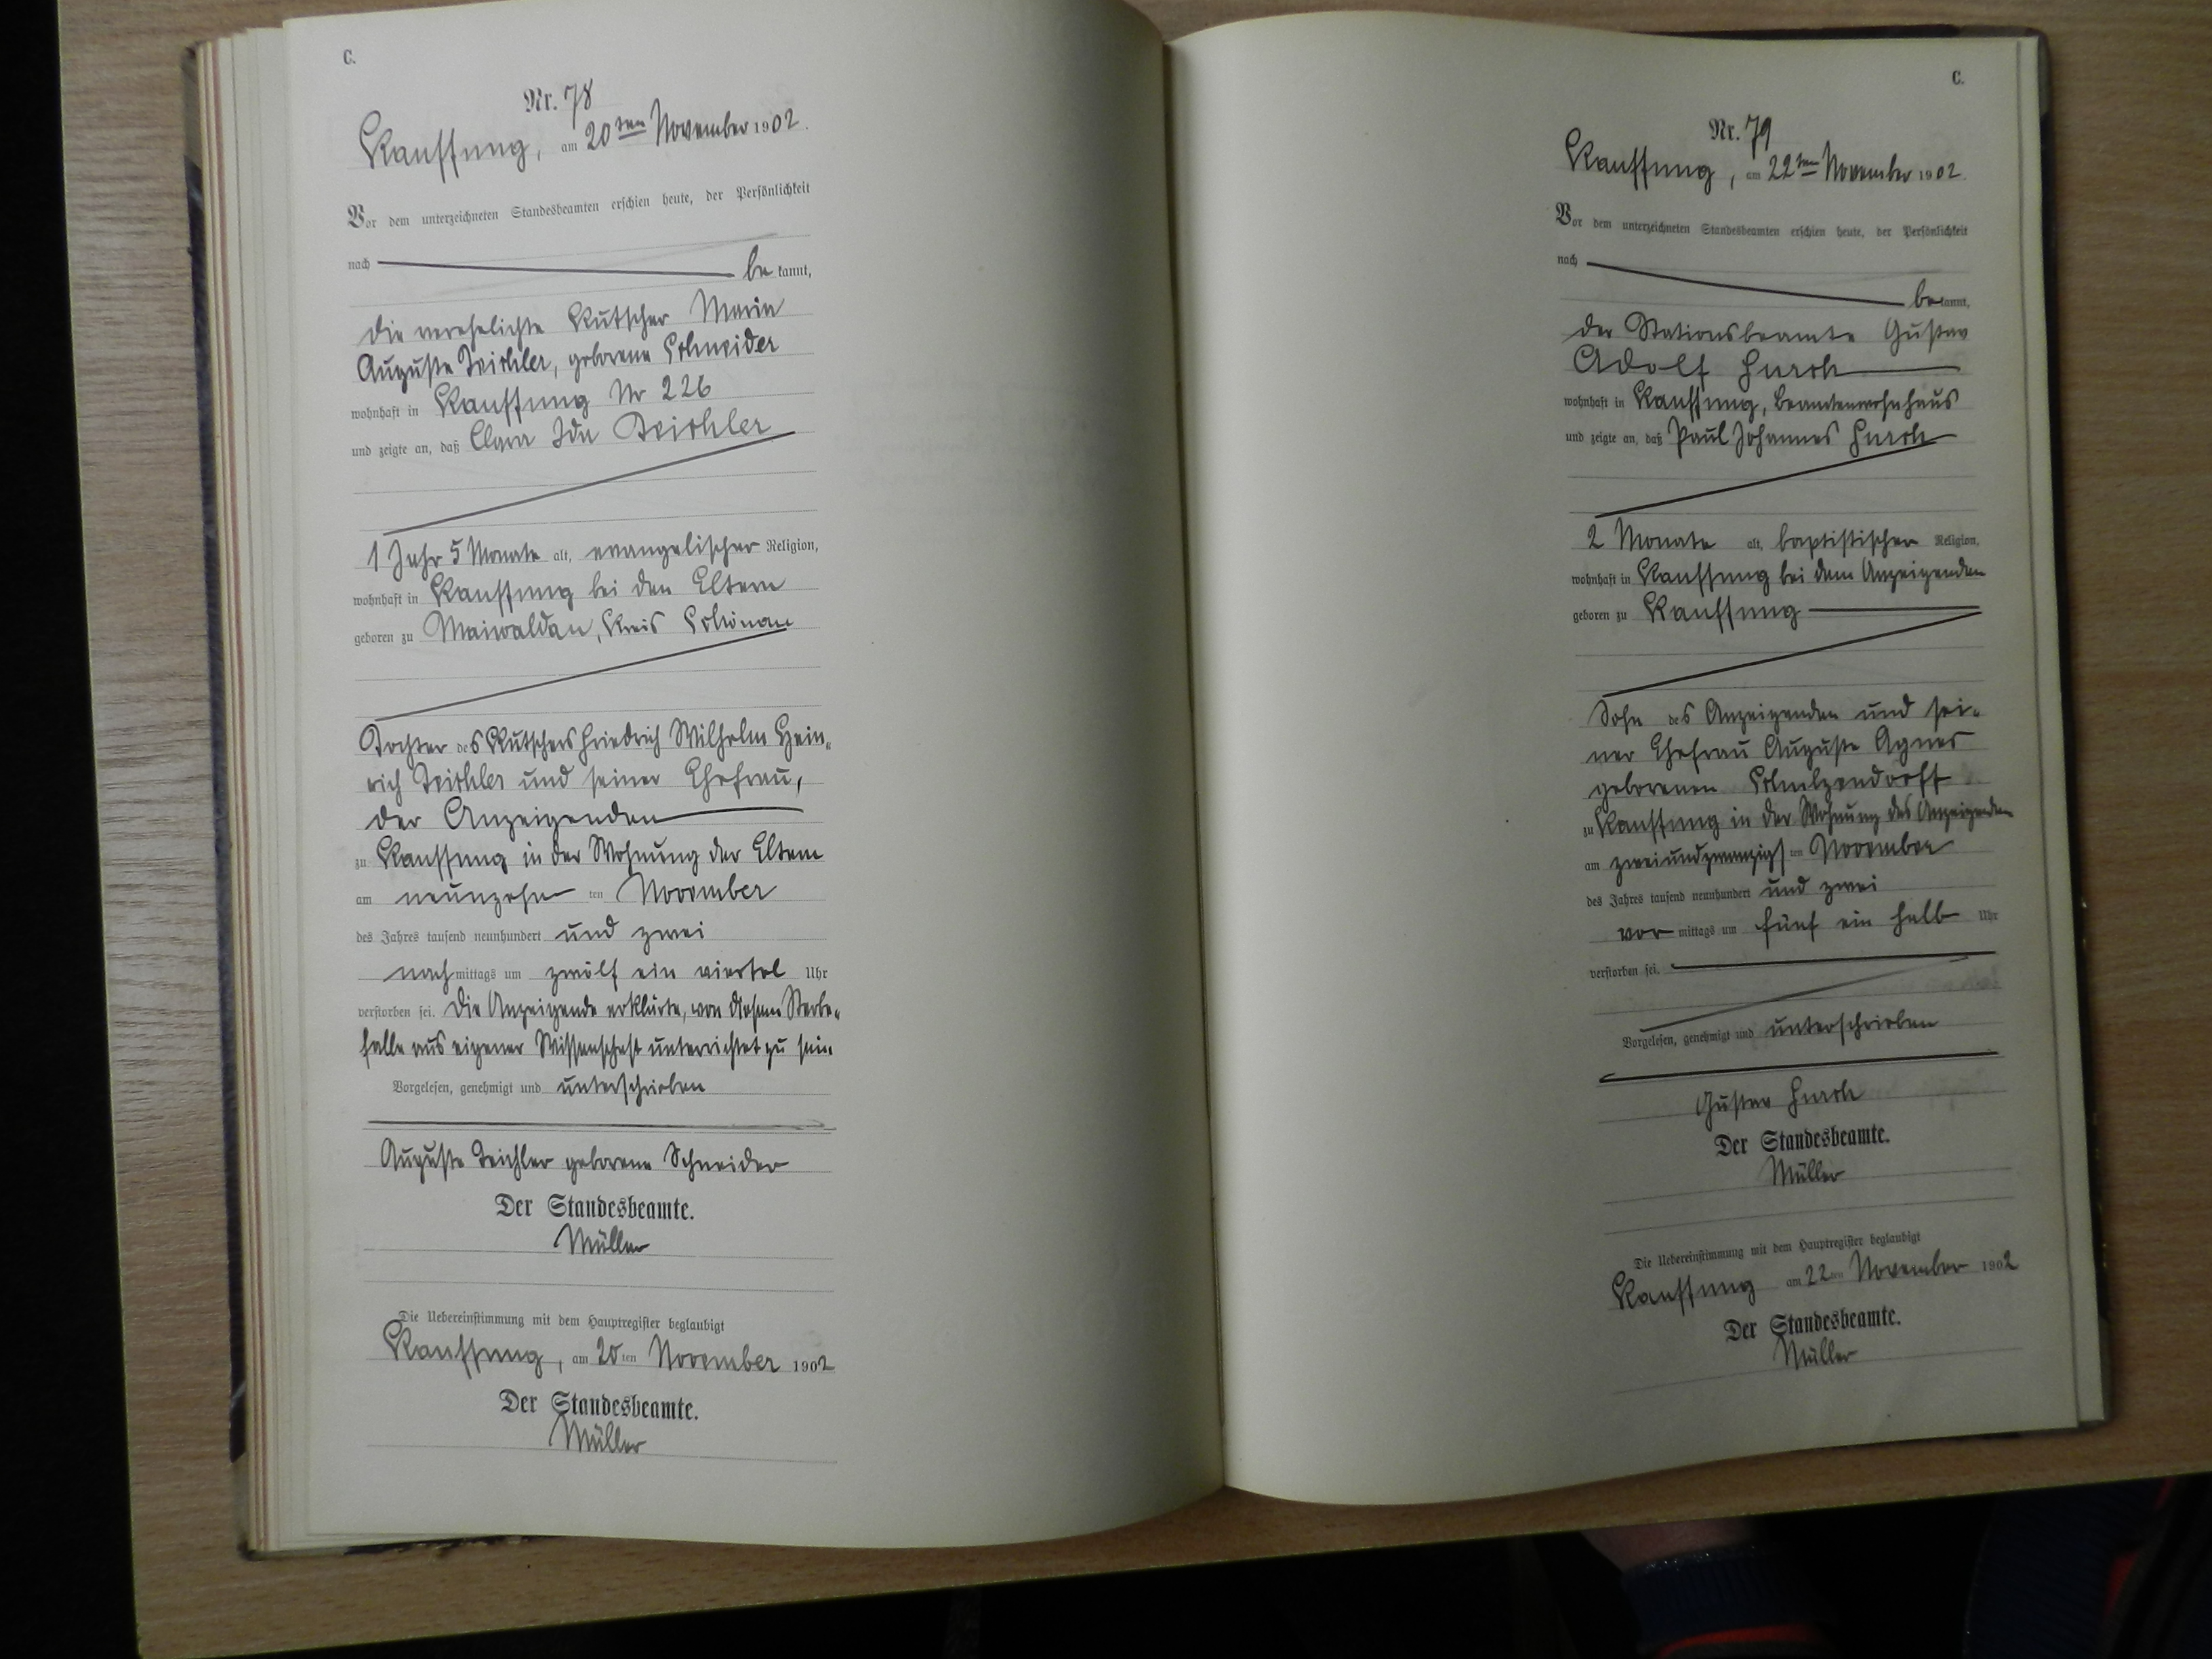 C.
Nr. 78
Kauffung, am 20ten November 1902.
Vor dem unterzeichneten Standesbeamten erschien heute, der Persönlichkeit
nach be kannt,
die verehelichte Kutscher Marie
Auguste Teichler, geborene Schneider
wohnhaft in Kauffung Nr 226
und zeigte an, daß Clara Ida Teichler
1 Jahr 5 Monate alt, evangelischer Religion,
wohnhaft in Kauffung bei den Eltern
geboren zu Maiwaldau, Kreis Schönau
Tochter des Kutschers Friedrich Wilhelm Hein-
rich Teichler und seiner Ehefrau,
der Anzeigenden
zu Kauffung in der Wohnung der Eltern
am neunzehn ten November
des Jahres tausend neunhundert und zwei
nach mittags um zwölf ein viertel Uhr
verstorben sei. Die Anzeigende erklärte, von diesem Sterbe-
falle aus eigener Wissenschaft unterrichtet zu sein.
Vorgelesen, genehmigt und unterschrieben
Auguste Teichler geborene Schneider
Der Standesbeamte.
Müller
Die Uebereinstimmung mit dem Hauptregister beglaubigt
Kauffung, am 20ten November 1902
Der Standesbeamte.
Müller
C.
Nr. 79
Kauffung, am 22ten November 1902.
Vor dem unterzeichneten Standesbeamten erschien heute, der Persönlichkeit
nach be kannt,
der Stationsbeamte Gustav
Adolf
wohnhaft in Kauffung, Beamtenwohnhaus
und zeigte an, daß Paul Johannes
2 Monate alt, baptistischer Religion,
wohnhaft in Kauffung bei dem Anzeigenden
geboren zu Kauffung
Sohn des Anzeigenden und sei-
ner Ehefrau Auguste Agnes
geborenen Schulzendorff
zu Kauffung in der Wohnung des Anzeigenden
am zweiundzwanzigs ten November
des Jahres tausend neunhundert und zwei
vor mittags um fünf ein halb Uhr
verstorben sei.
Vorgelesen, genehmigt und unterschrieben
Gustav
Der Standesbeamte.
Müller
Die Uebereinstimmung mit dem Hauptregister beglaubigt
Kauffung am 22ten November 1902
Der Standesbeamte.
Müller